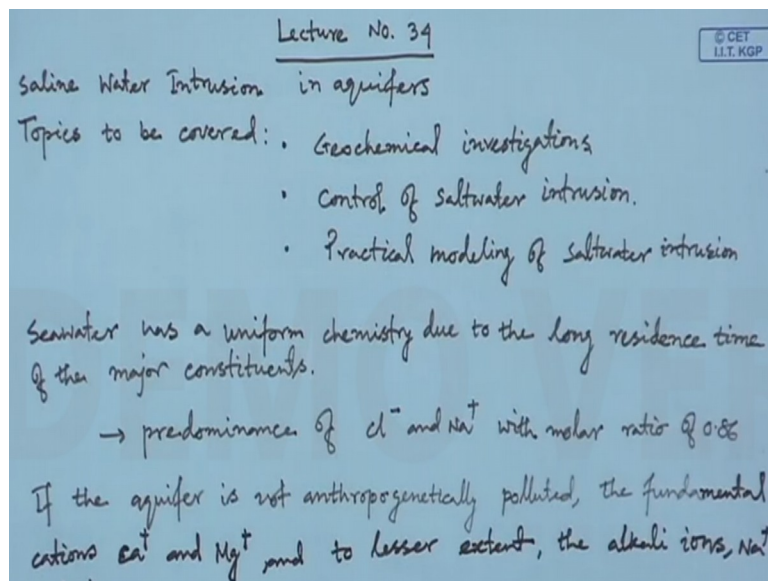 Lecture No. 34
© CET
I.I.T. KGP
Saline Water Intrusion in aquifers
Topics to be covered: • Geochemical investigations
• Control of saltwater intrusion.
• Practical modeling of saltwater intrusion
DEMO VE
Seawater has a uniform chemistry due to the long residence time
of the major constituents.
→ predominance of Cl⁻ and Na⁺ with molar ratio of 0.86
If the aquifer is not anthropogenetically polluted, the fundamental
cations Ca⁺ and Mg⁺, and to lesser extent, the alkali ions, Na⁺